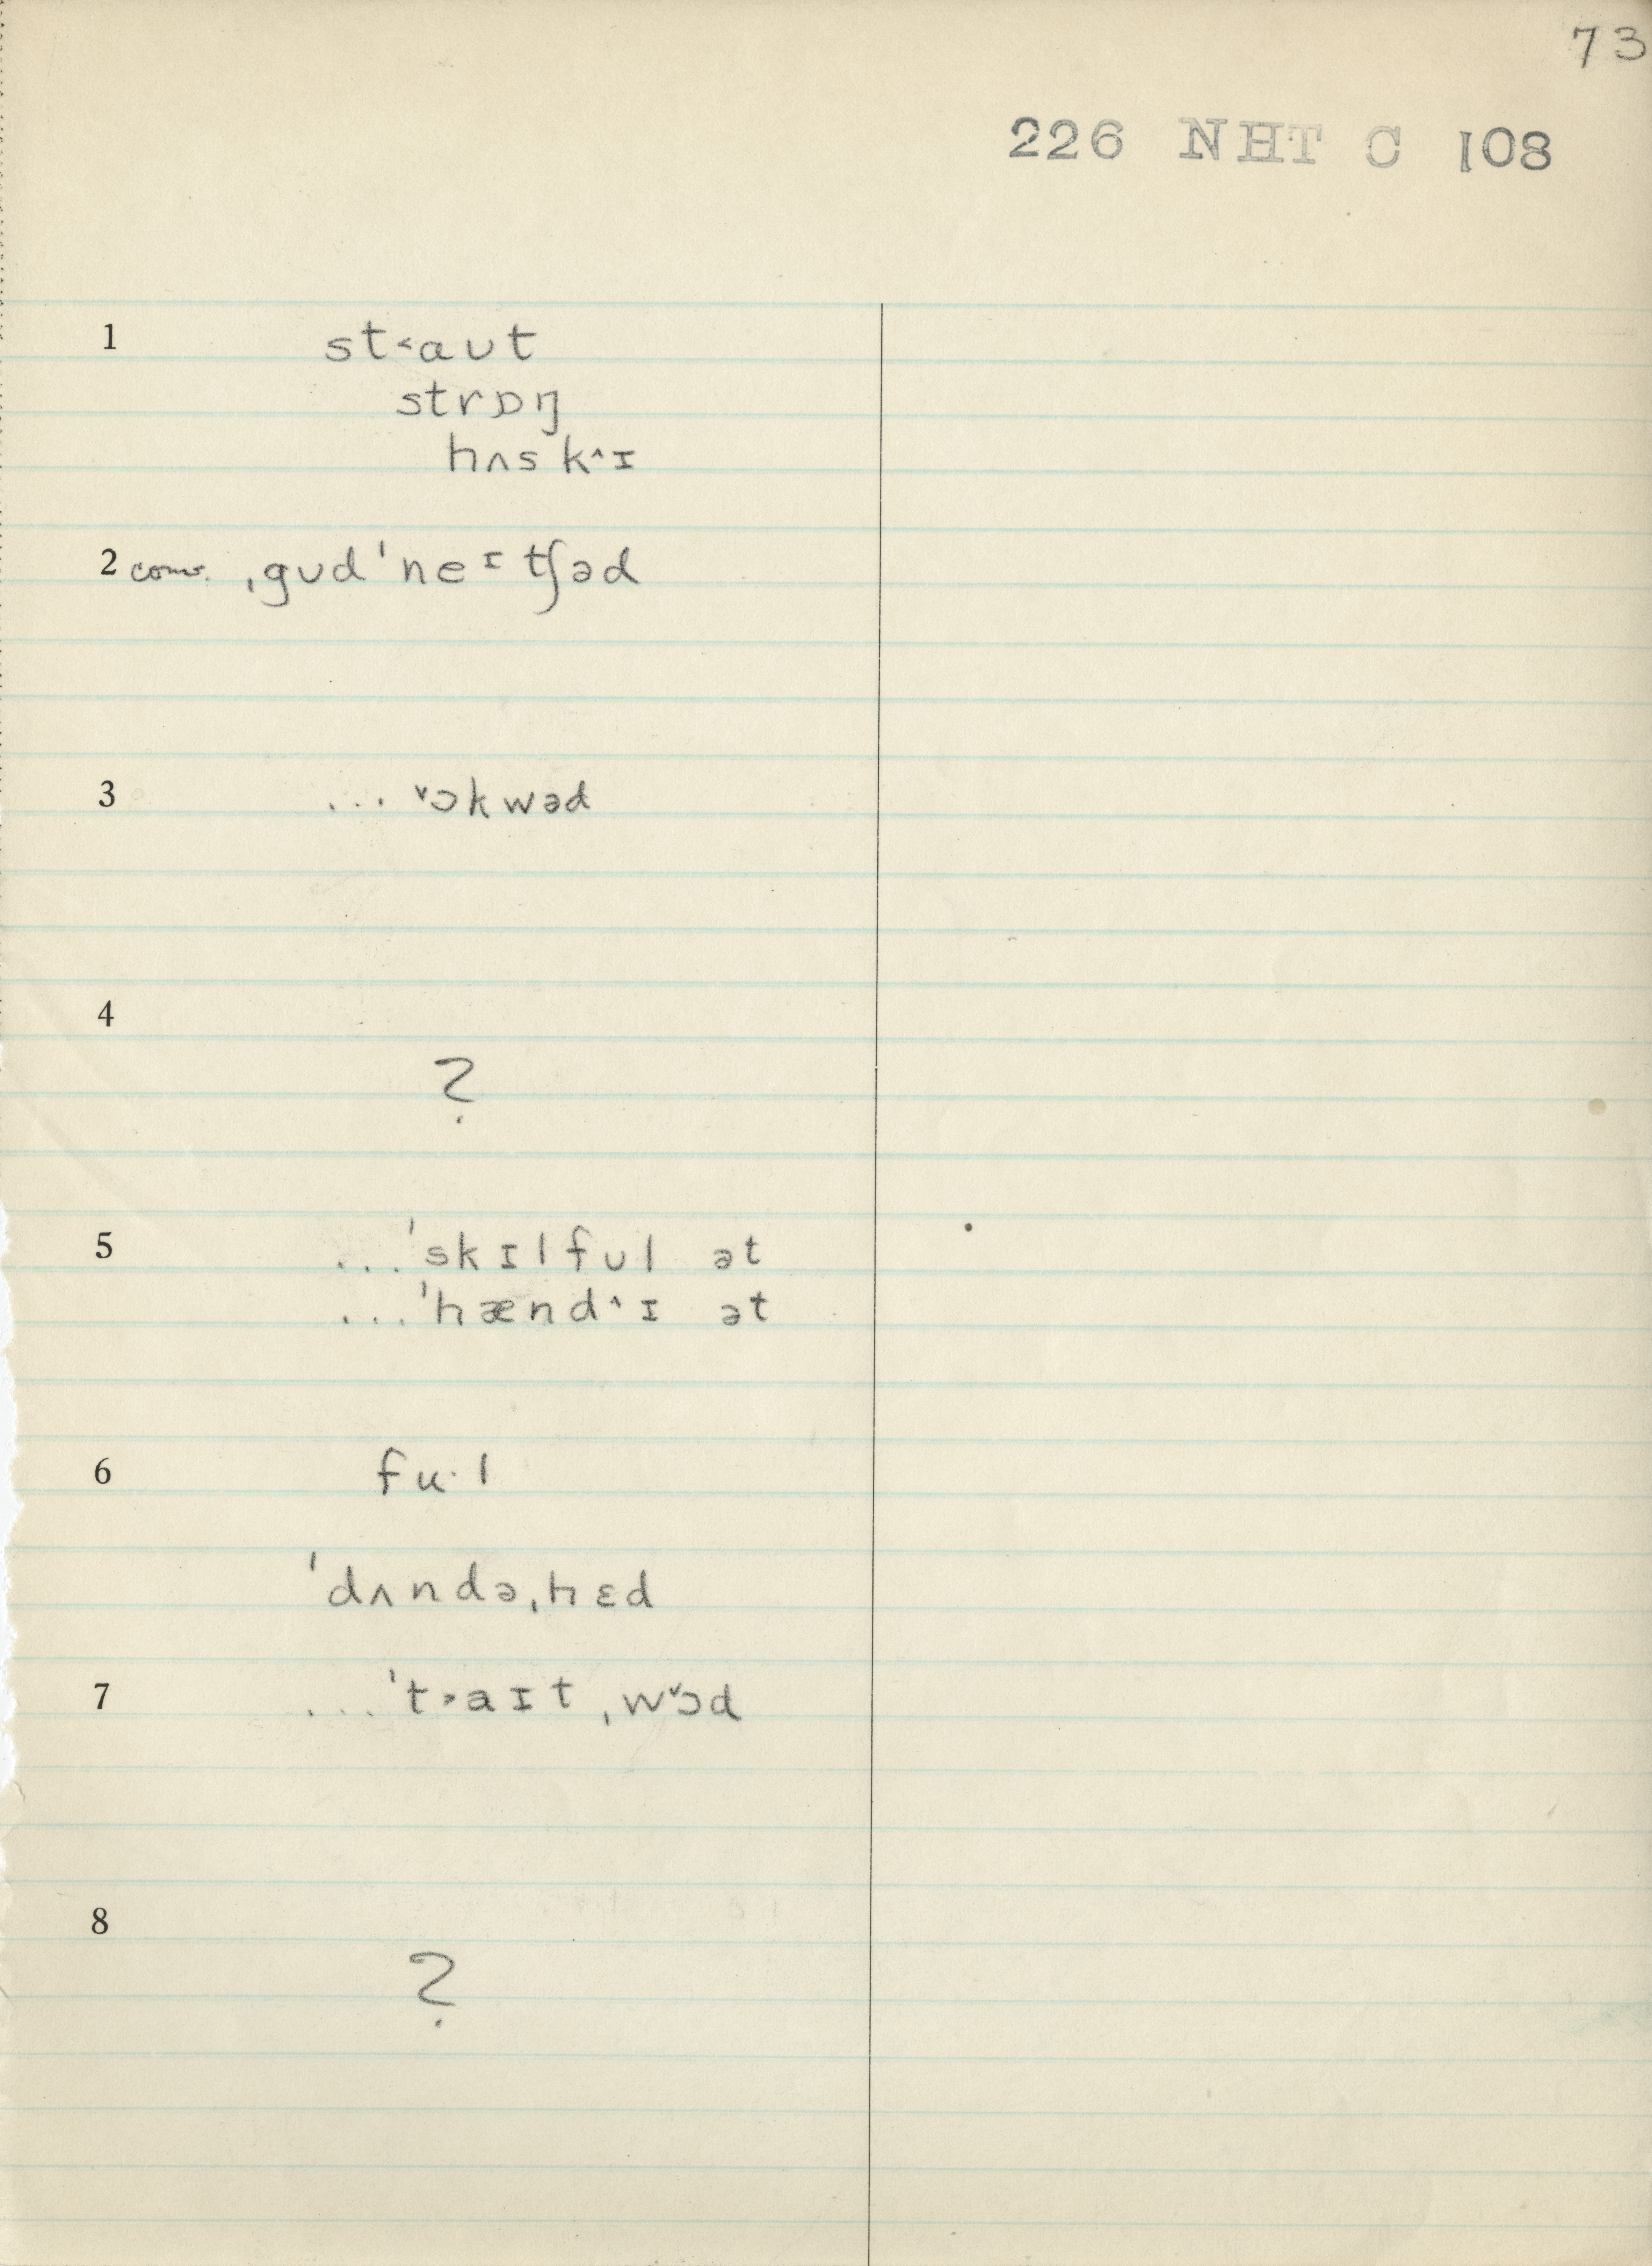 73
226 NHT C 108
1 st˂aʊt
strɒŋ
hʌsk˄ɪ
2 conv. ˌgʊdˈneᶦtʃəd
3 ... ˅ɔkwəd
4
?
5 ...ˈskɪlfʊl ət
...ˈhænd˄ɪ ət
6 fu·l
ˈdʌndəˌhɛd
7 ...ˈt˃aɪtˌw˅ɔd
8
?